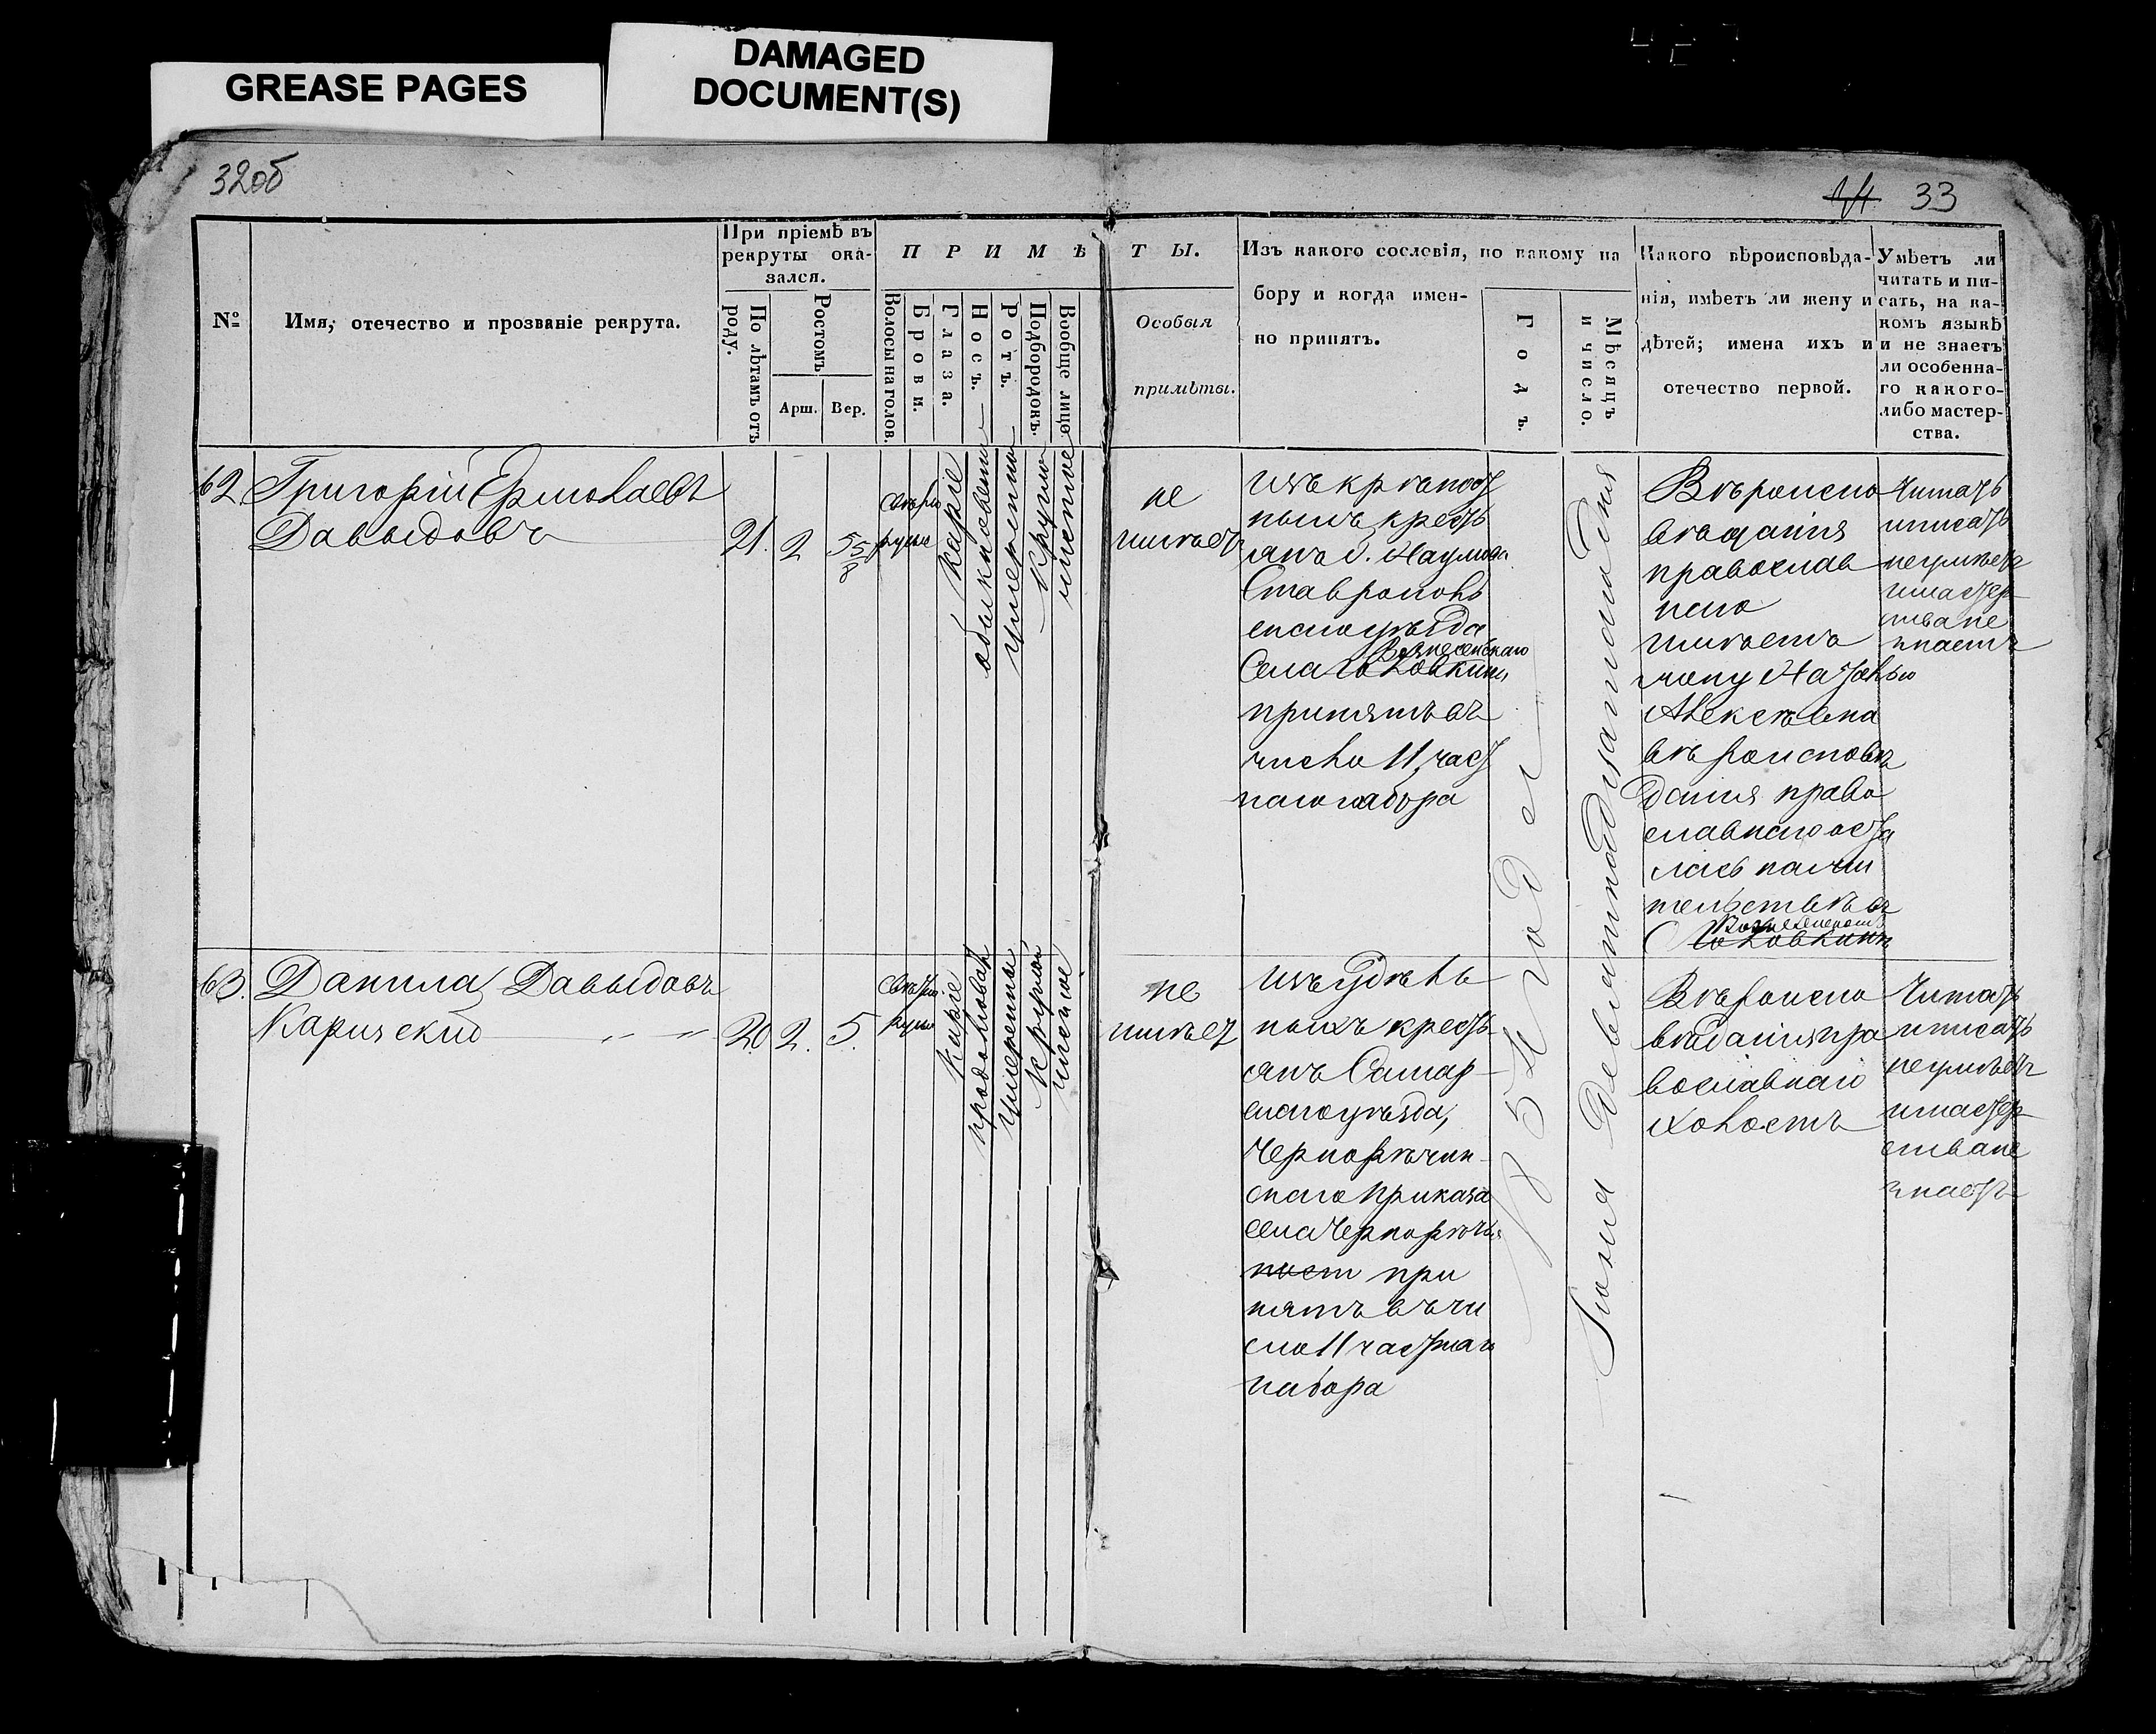 GREASE PAGES
DAMAGED
DOCUMENT(S)
32об
14 33
№
Имя, отечество и прозваніе рекрута.
При пріемѣ въ
рекруты ока-
зался.
По лѣтамъ отъ
роду.
Ростомъ
Арш.
Вер.
ПРИМѢТЫ.
Волосы на голов.
Брови.
Глаза.
Носъ.
Ротъ.
Подбородокъ.
Вообще лицо
Особыя
примѣты.
Изъ какого сословія, по какому на
бору и когда имен-
но принятъ.
Годъ.
Мѣсяцъ
и число.
Какого вѣроисповѣда-
нія, имѣетъ ли жену и
дѣтей; имена ихъ и
отечество первой.
Умѣетъ ли
читать и пи-
сать, на ка-
комъ языкѣ
и не знаетъ
ли особенна-
го какого-
либо мастер-
ства.
62
Григорій Ермолаевъ
Давыдовъ
21.
2
5 5/8
свѣтло
русые
каріе
обыкновенный
умѣренный
круглый
чистое
не
имѣет
изъ крѣпост
ныхъ кресть
янъ Г. Наумова
Ставрополь
скаго уѣзда
Вознесенскаго
Села Головкина
принятъ въ
число 11, част
наго набора
185 год
Іюня девятнадцатаго дня
Вѣроиспо
вѣданія
православ
наго
имѣетъ
жену Наталью
Алексѣевна
вѣроисповѣ
данія право
славнаго оста
лась на жи
тельствѣ въ
Вознесенскомъ
С Головкинѣ
Читать
и писать
не умѣетъ
и мастер
ства не
знаетъ
63.
Данила Давыдовъ
Каричскій
20.
2.
5.
свѣтло
русые
каріе
продолговат
умѣренный
круглый
чистое
не
имѣет
изъ удѣль
ныхъ кресть
янъ Самар-
скаго уѣзда,
Чернорѣчин-
скаго приказа
села Чернорѣчья
при
нятъ въ чи
сло 11 частнаго
набора
Вѣроиспо
вѣданія пра
вославнаго
холостъ
Читать
и писать
не умѣетъ
и мастер-
ства не
знаетъ